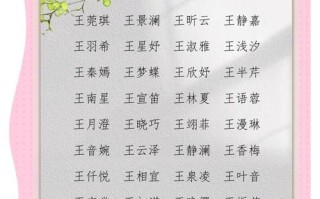 王菀琪 王景澜 王昕云 王静嘉
王羽希 王星妤 王淑雅 王浅汐
王秦嫣 王梦蝶 王欣妤 王半芹
王南星 王宣笛 王林夏 王语蓉
王月澄 王晓巧 王翊菲 王漫琳
王音婉 王云泽 王静澜 王香梅
王仟悦 王相宜 王泉凌 王叶音